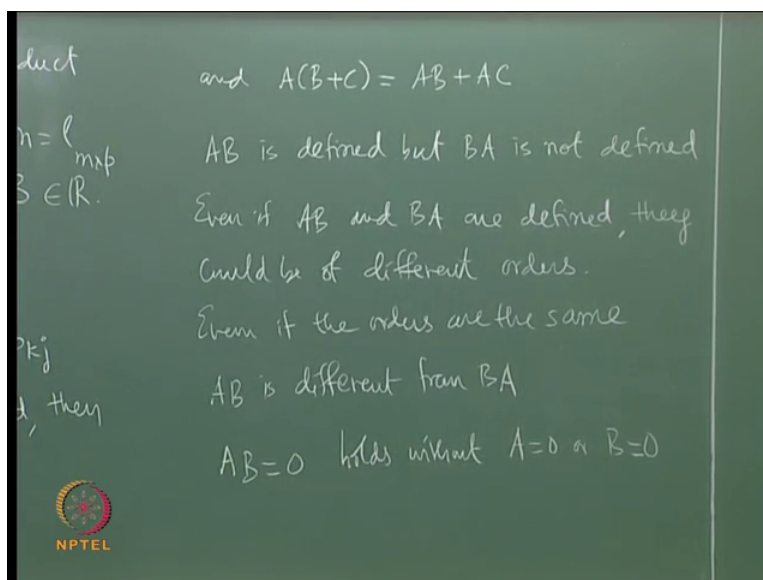 duct
n = l
m×p
B ∈ ℝ.
kj
d, they
and A(B+C) = AB + AC
AB is defined but BA is not defined
Even if AB and BA are defined, they
could be of different orders.
Even if the orders are the same
AB is different from BA
AB=0 holds without A=0 or B=0
NPTEL